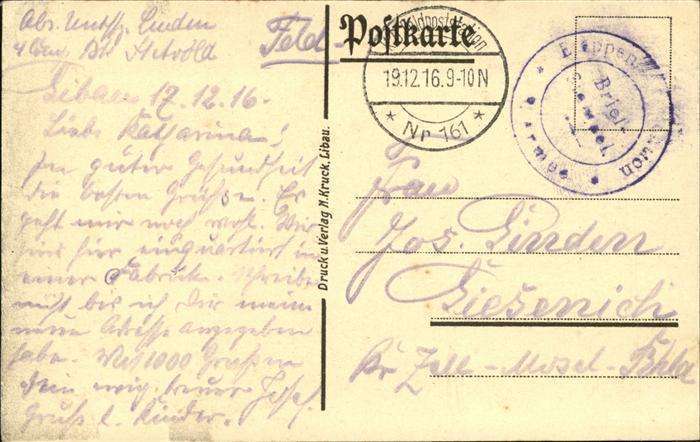 Abs. Untffz. Linden
Feld-
Postkarte
Feldpoststation
19.12.16.9-10N
* Nr 161 *
Etappen
Brief-
Stempel.
Armee
Libau 17.12.16.
Liebe Katharina!
In guter Gesundheit
die besten Grüße. Es
geht mir noch wohl. Wir
sind hier einquartiert in
einer Fabrik. Schreibe
nicht bis ich Dir meine
neue Adresse angegeben
habe. Viel 1000 Grüße
Dein ewig treuer Josef.
Gruß l. Kinder.
Druck u. Verlag M. Kruck, Libau.
Frau
Jos. Linden
Briedenich
Kr Zell-Mosel-